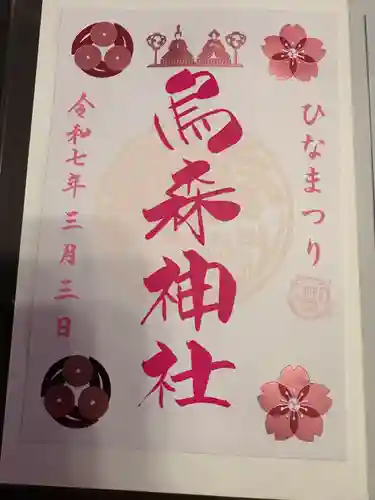 ひなまつり
烏森神社
令和七年三月三日